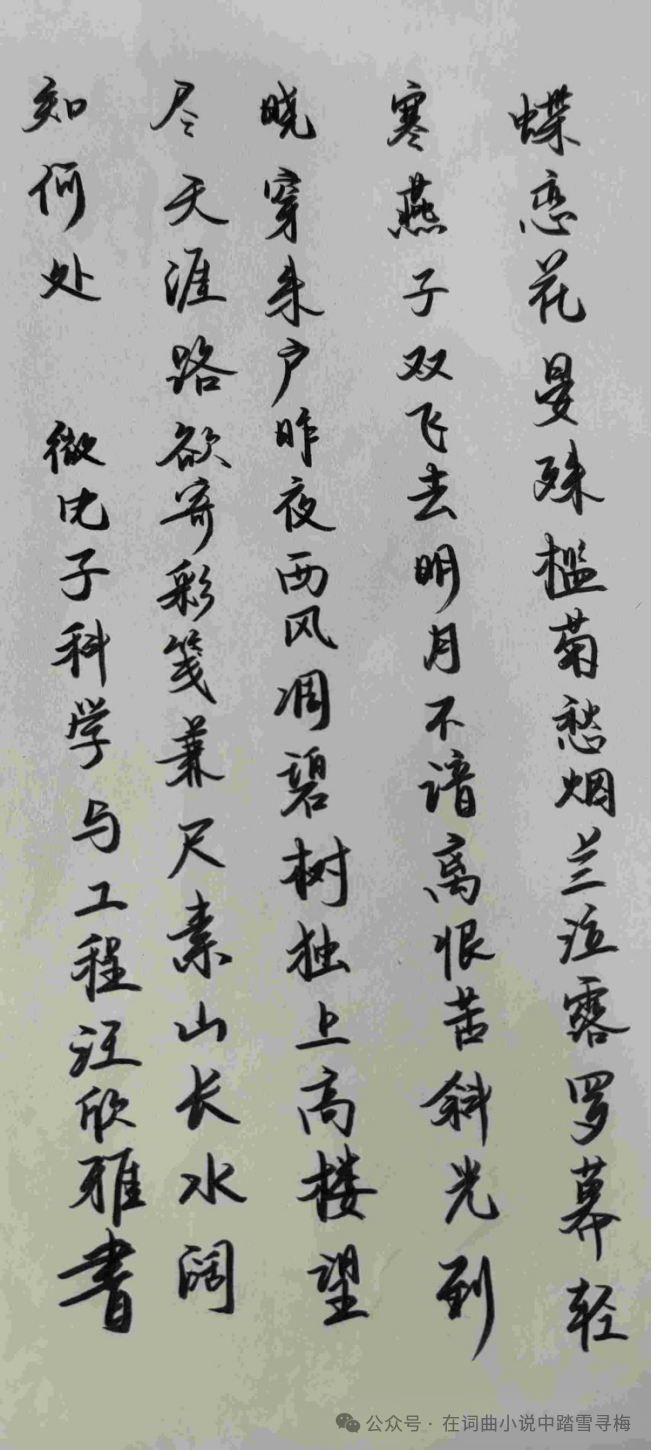 蝶恋花晏殊槛菊愁烟兰泣露罗幕轻
寒燕子双飞去明月不谙离恨苦斜光到
晓穿朱户昨夜西风凋碧树独上高楼望
尽天涯路欲寄彩笺兼尺素山长水阔
知何处 微电子科学与工程汪欣雅書
公众号·在词曲小说中踏雪寻梅